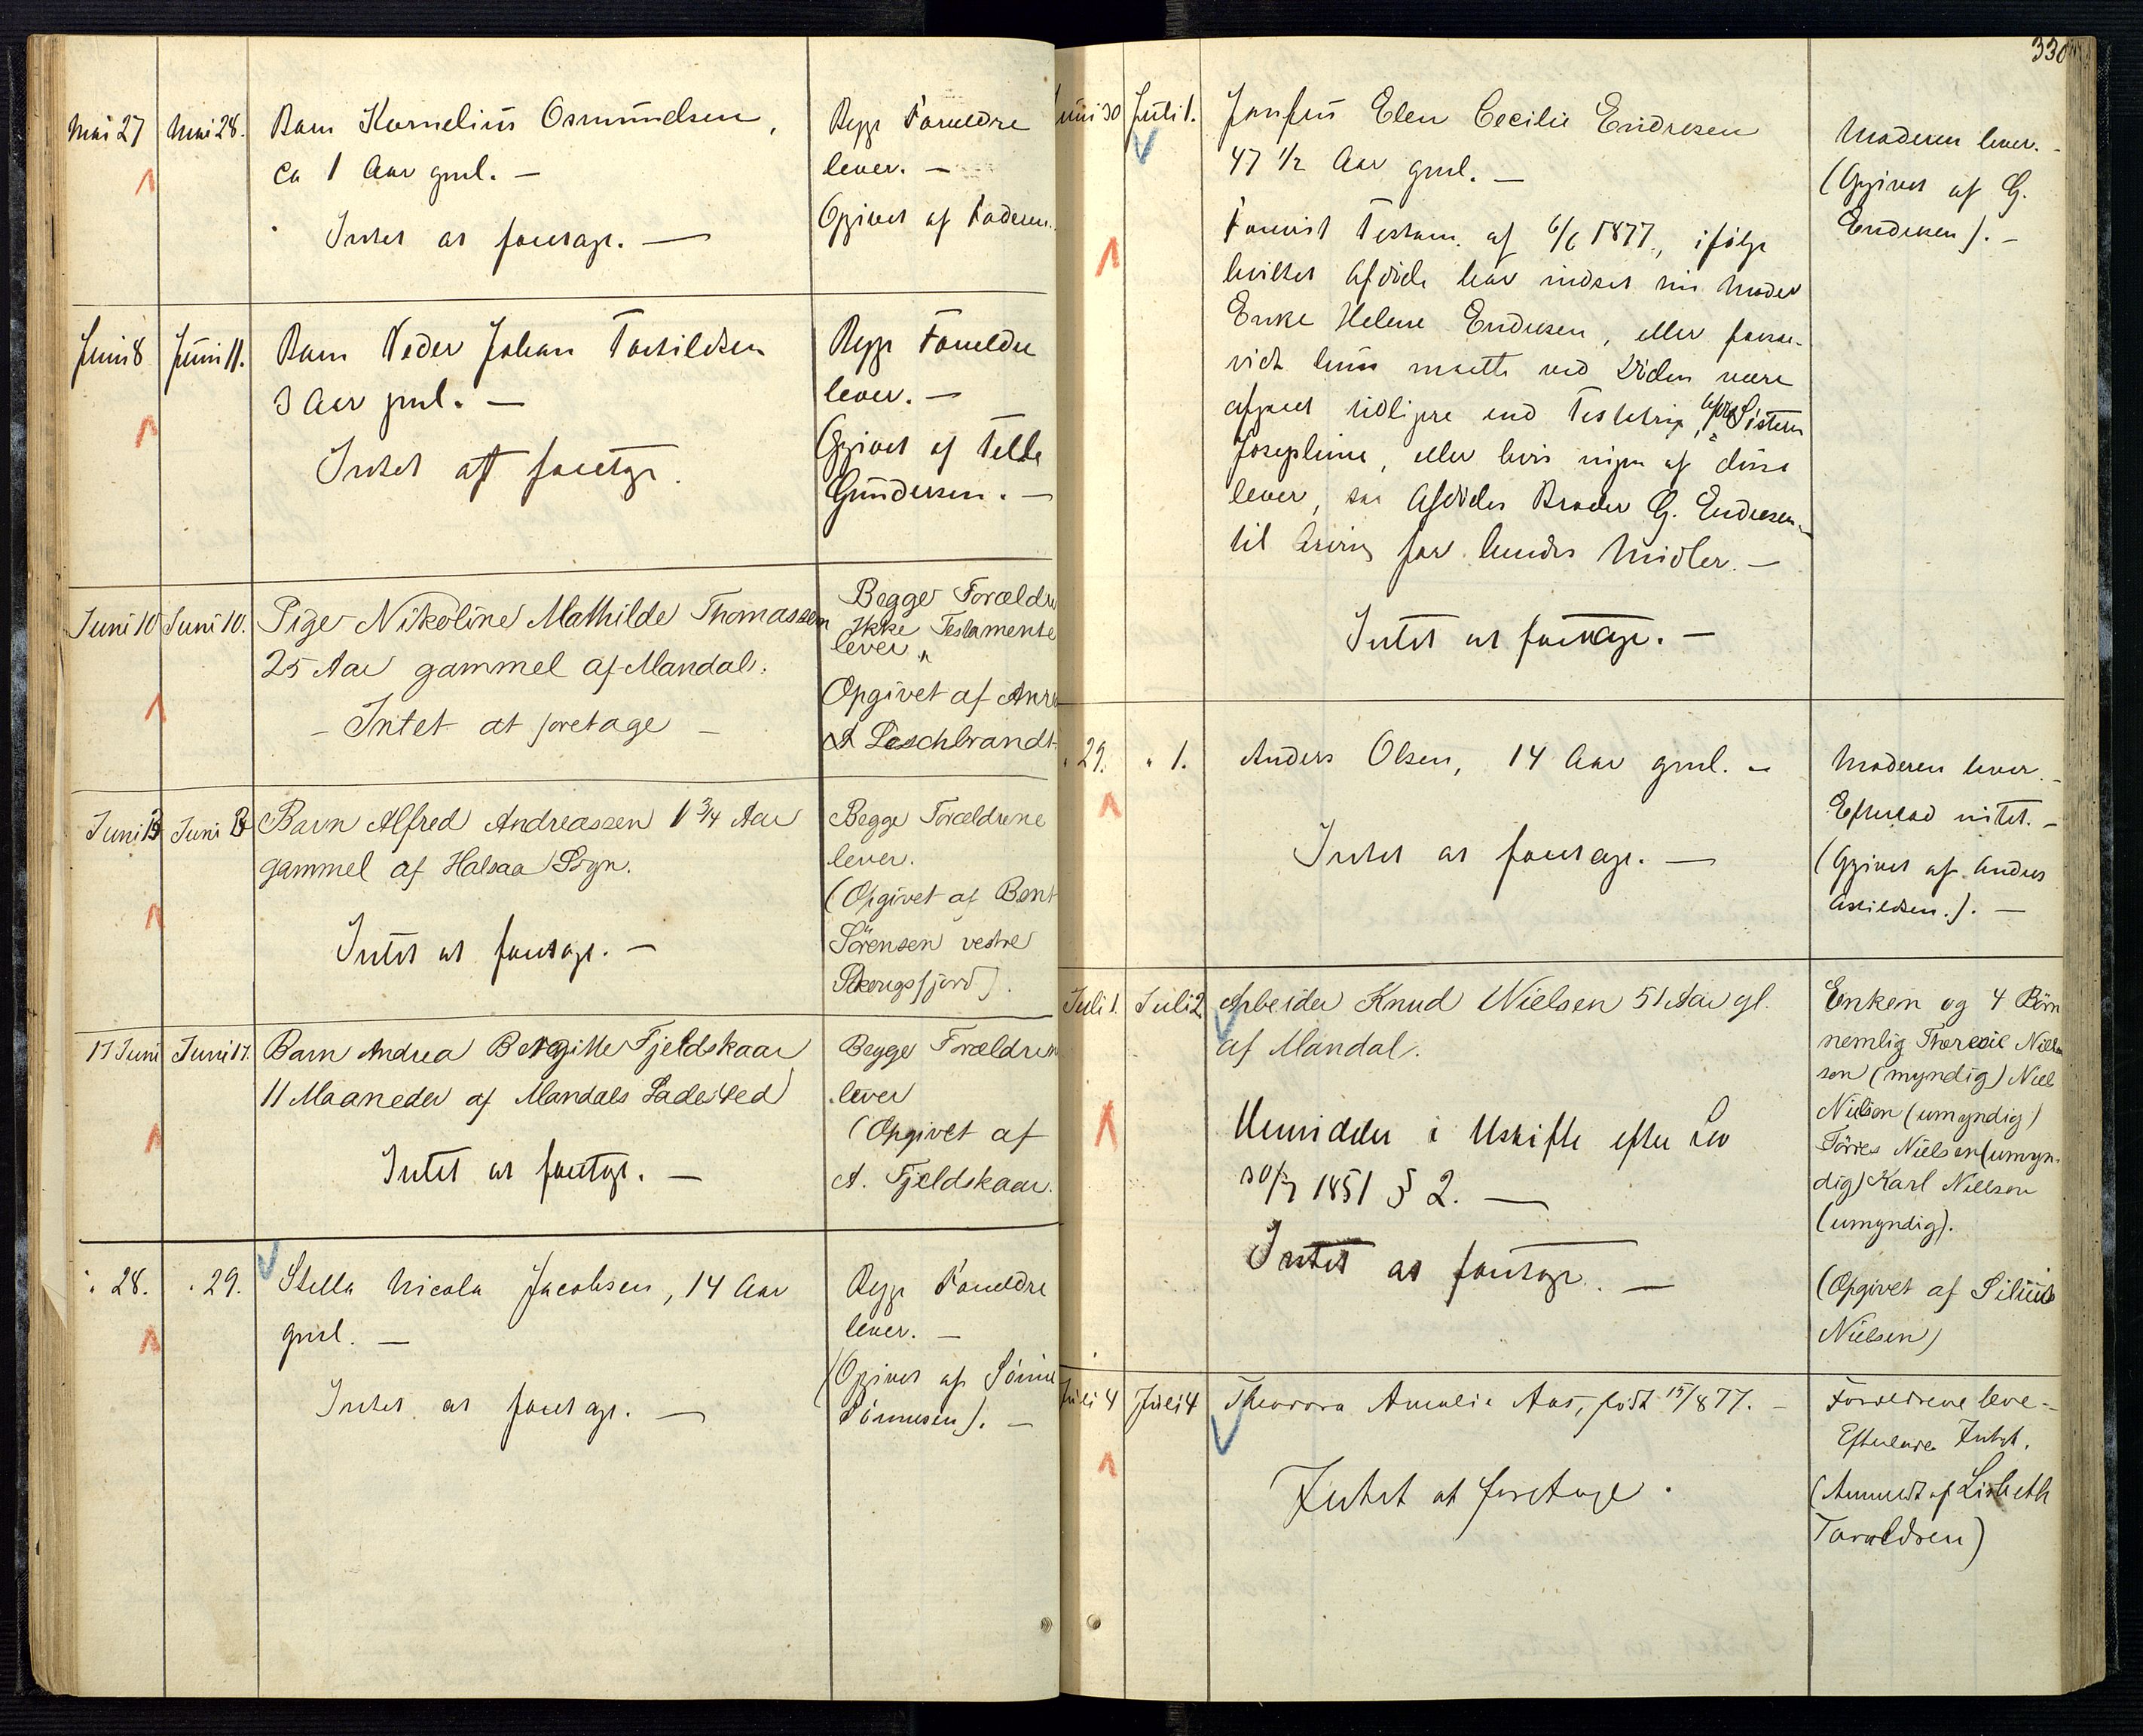 Mai 27 Mai 28. Barn Kornelius Osmundsen,
ca 1 Aar gml. —
Intet at foretage. —
Begge Forældre
lever. —
Opgivet af Faderen.
Juni 8 Juni 11. Barn Peder Johan Torkildsen
3 Aar gml. —
Intet at foretage.
Begge Forældre
lever. —
(Opgivet af
Gundersen. —
Juni 10 Juni 10. Pige Nikoline Mathilde Thomassen
25 Aar gammel af Mandal.
- Intet at foretage -
Begge Forældre
Ikke Testamente
lever
Opgivet af
Juni 13 Juni 13 Barn Alfred Andreassen 1 3/4 Aar
gammel af Halsaa Sogn.
Intet at foretage. —
Begge Forældrene
lever.
(Opgivet af Bent
Sörensen vestre
Skougsfjord).
17 Juni Juni 17. Barn Andrea Bergitte Fjeldskaar
11 Maaneder af Mandals Ladested
Intet at foretage. —
Begge Forældrene
lever
(Opgivet af
A. Fjeldskaar.
" 28. " 29. Stella Nicola Jacobsen, 14 Aar
gml. —
Intet at foretage. —
Begge Forældre
lever. —
(Opgivet af
330
Juni 30 Juli 1. Jomfru Elen Cecilie Endresen
47 1/2 Aar gml. —
Forevist Testam. af 6/6 1877, ifølge
hvilket Afdøde har indsat sin Moder
Enke Helene Endresen, eller forsaa-
vidt hun maatte ved Døden være
afgaaet tidligere end Testatrix, Søsteren
Josephine, eller hvis ingen af disse
lever, da Afdødes Broder G. Endresen
til Arving for hendes Midler. —
Intet at foretage. —
Moderen lever. -
(Opgivet af G.
Endresen). —
" 29. " 1. Anders Olsen, 14 Aar gml. -
Intet at foretage. —
Moderen lever. -
Efterlod intet. -
(Opgivet af Anders
Askildsen.). —
Juli 1. Juli 2. Arbeider Knud Nielsen 51 Aar gl.
af Mandal.
Hensidder i Uskifte efter Lov
30/7 1851 § 2. —
Intet at foretage. —
Enken og 4 Börn
nemlig Theresie Niel-
sen (myndig) Niels
Nielsen (umyndig)
Törres Nielsen (umyn-
dig) Karl Nielsen
(umyndig).
(Opgivet af
Nielsen)
Juli 4 Juli 4 Theodora Amalie Aas, født 15/8 77. -
Intet at foretage.
Forældrene leve -
Efterlader Intet.
(Anmeldt af Lisbeth
Taraldsen)